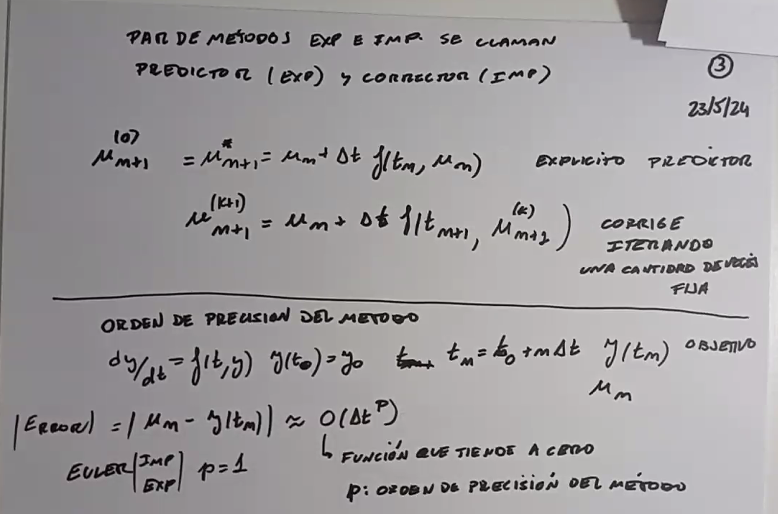 PAR DE METODOS EXP E IMP. SE LLAMAN
PREDICTOR (EXP) y CORRECTOR (IMP)
3
23/5/24
u_{n+1}^{(0)} = u^*_{n+1} = u_n + Δt f(t_n, u_n) EXPLICITO PREDICTOR
u_{n+1}^{(k+1)} = u_n + Δt f(t_{n+1}, u_{n+1}^{(k)}) CORRIGE
ITERANDO
UNA CANTIDAD DE VECES
FIJA
ORDEN DE PRECISION DEL METODO
dy/dt = f(t,y) y(t_0) = y_0 t_n = t_0 + nΔt y(t_n) OBJETIVO
u_n
|ERROR| = |u_n - y(t_n)| ≈ O(Δt^p)
↳ FUNCIÓN QUE TIENDE A CERO
EULER |IMP EXP| p=1
p: ORDEN DE PRECISIÓN DEL MÉTODO